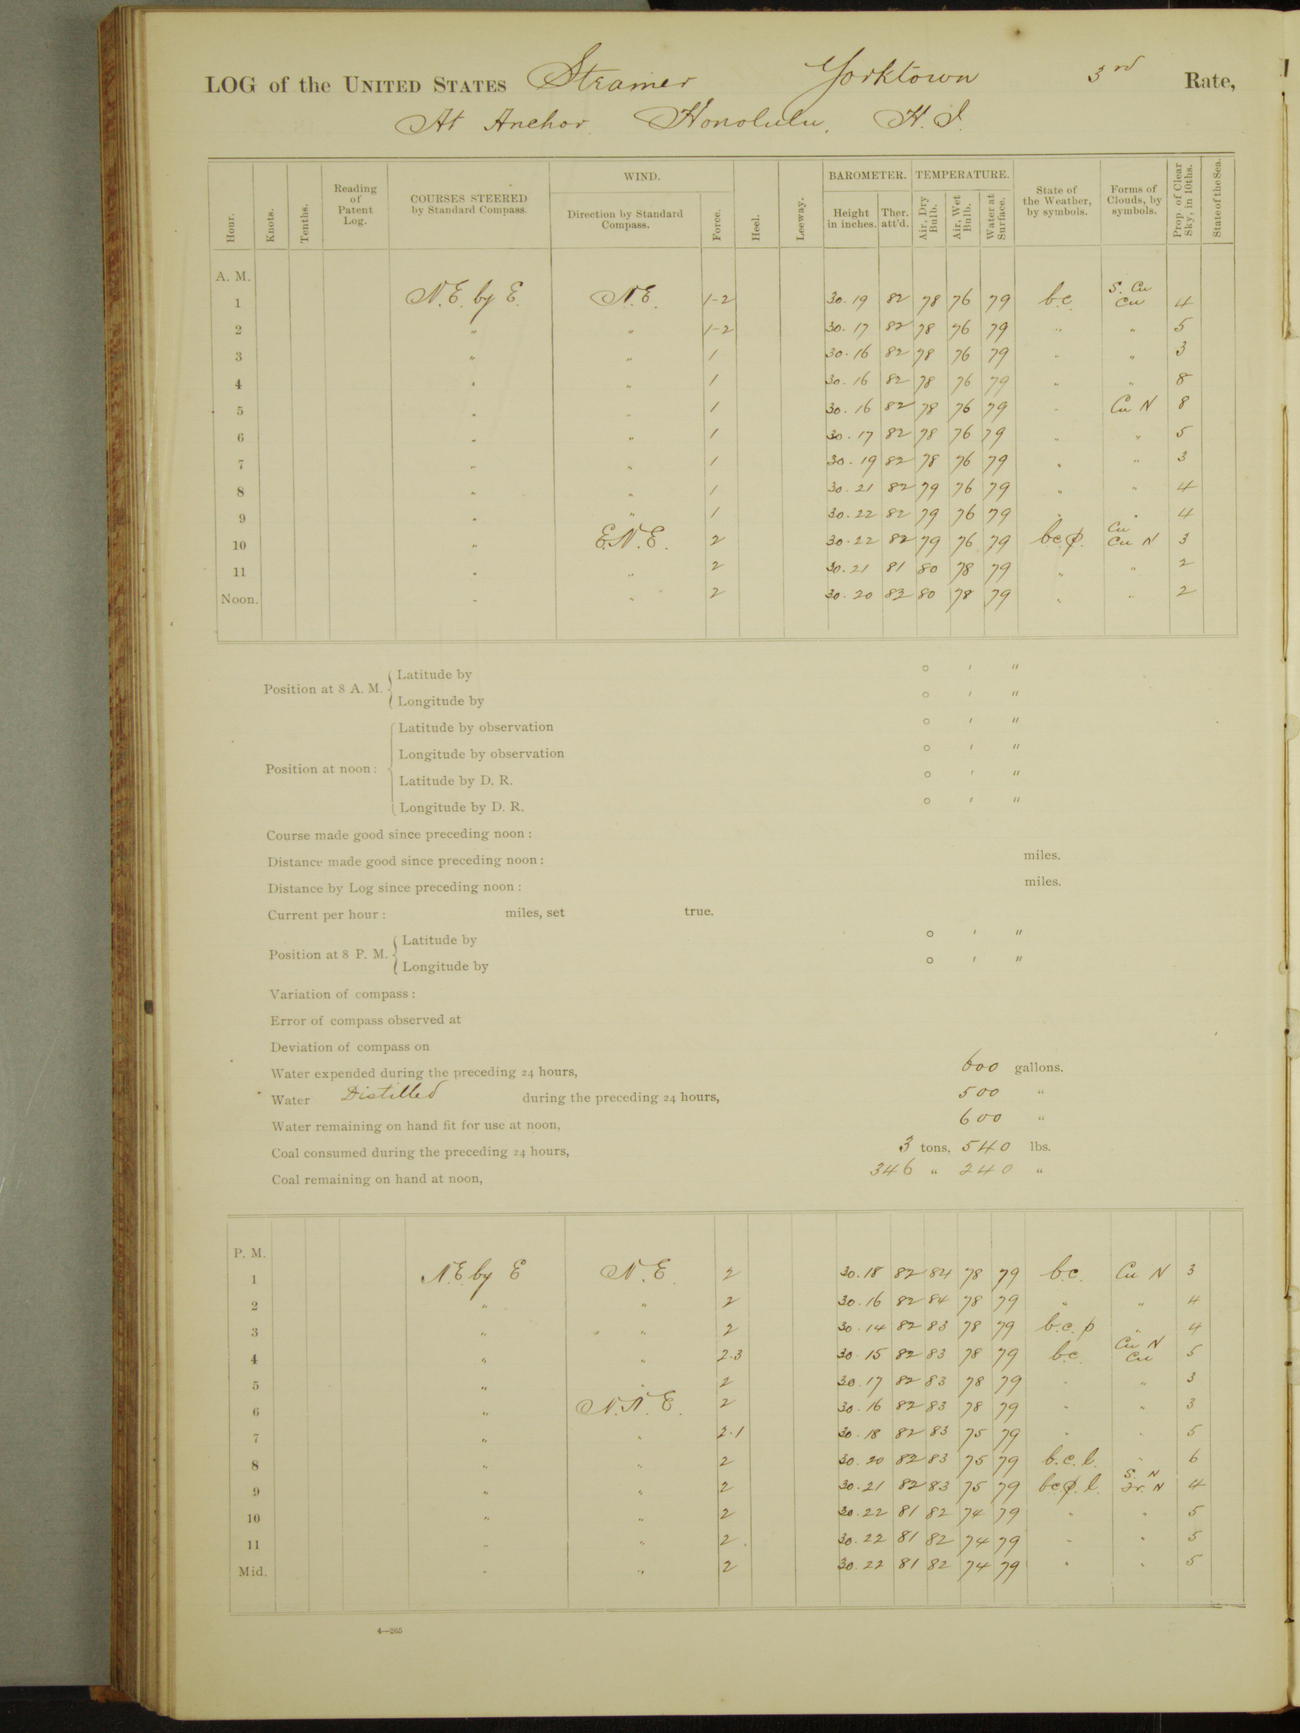 LOG of the UNITED STATES Steamer Yorktown 3rd Rate,
At Anchor, Honolulu, H. I.
Hour. Knots. Tenths. Reading of Patent Log. COURSES STEERED by Standard Compass. WIND. Direction by Standard Compass. Force. Heel. Leeway. BAROMETER. Height in inches. Ther. att'd. TEMPERATURE. Air, Dry Bulb. Air, Wet Bulb. Water at Surface. State of the Weather, by symbols. Forms of Clouds, by symbols. Prop. of Clear Sky, in 10ths. State of the Sea.
A. M.
1 N.E. by E. N.E. 1-2 30.19 82 78 76 79 b.c. S. Cu Cu 4
2 " " 1-2 30.17 82 78 76 79 " " 5
3 " " 1 30.16 82 78 76 79 " " 3
4 " " 1 30.16 82 78 76 79 " " 8
5 " " 1 30.16 82 78 76 79 " Cu N 8
6 " " 1 30.17 82 78 76 79 " " 5
7 " " 1 30.19 82 78 76 79 " " 3
8 " " 1 30.21 82 79 76 79 " " 4
9 " " 1 30.22 82 79 76 79 " " 4
10 " E.N.E. 2 30.22 82 79 76 79 b.c. Cu Cu N 3
11 " " 2 30.21 81 80 78 79 " " 2
Noon. " " 2 30.20 83 80 78 79 " " 2
Position at 8 A. M. { Latitude by ° ' "
Longitude by ° ' "
Position at noon: { Latitude by observation ° ' "
Longitude by observation ° ' "
Latitude by D. R. ° ' "
Longitude by D. R. ° ' "
Course made good since preceding noon:
Distance made good since preceding noon: miles.
Distance by Log since preceding noon: miles.
Current per hour: miles, set true.
Position at 8 P. M. { Latitude by ° ' "
Longitude by ° ' "
Variation of compass:
Error of compass observed at
Deviation of compass on
Water expended during the preceding 24 hours, 600 gallons.
Water Distilled during the preceding 24 hours, 500 "
Water remaining on hand fit for use at noon, 600 "
Coal consumed during the preceding 24 hours, 3 tons, 540 lbs.
Coal remaining on hand at noon, 346 " 240 "
P. M.
1 N.E. by E N.E. 2 30.18 82 84 78 79 b.c. Cu N 3
2 " " 2 30.16 82 84 78 79 " " 4
3 " " 2 30.14 82 83 78 79 b.c.p " 4
4 " " 2.3 30.15 82 83 78 79 b.c. Cu N Cu 5
5 " " 2 30.17 82 83 78 79 " " 3
6 " N.N.E. 2 30.16 82 83 78 79 " " 3
7 " " 2.1 30.18 82 83 75 79 " " 5
8 " " 2 30.20 82 83 75 79 b.c.l. " 6
9 " " 2 30.21 82 83 75 79 l. S. N N 4
10 " " 2 30.22 81 82 74 79 " " 5
11 " " 2 30.22 81 82 74 79 " " 5
Mid. " " 2 30.22 81 82 74 79 " " 5
4—265